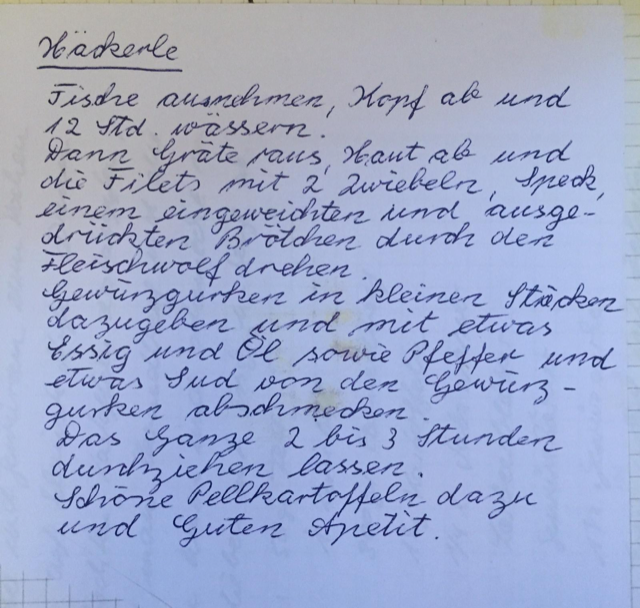 Häckerle
Fische ausnehmen, Kopf ab und
12 Std. wässern.
Dann Gräte raus, Haut ab und
die Filets mit 2 Zwiebeln, Speck,
einem eingeweichten und ausge-
drückten Brötchen durch den
Fleischwolf drehen.
Gewürzgurken in kleinen Stücken
dazugeben und mit etwas
Essig und Öl sowie Pfeffer und
etwas Sud von den Gewürz-
gurken abschmecken.
Das Ganze 2 bis 3 Stunden
durchziehen lassen.
Schöne Pellkartoffeln dazu
und Guten Apetit.